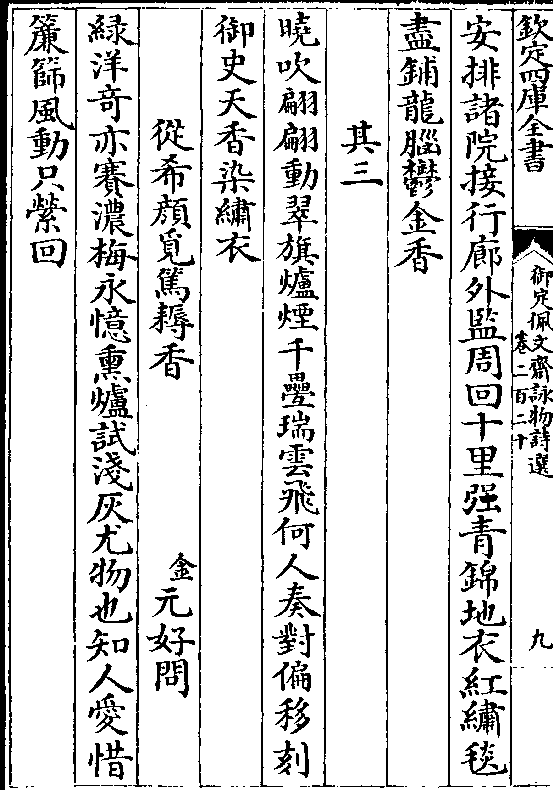 欽定四庫全書
御定佩文齋詠物詩選
卷二百二十
九
安排諸院接行廊外監周回十里强青錦地衣紅繡毯
盡鋪龍腦鬱金香
其三
曉吹翩翩動翠旗爐煙千疊瑞雲飛何人奏對偏移刻
御史天香染繡衣
從希顔覓篤耨香
金元好問
緑洋奇亦賽濃梅永憶熏爐試淺灰尤物也知人愛惜
簾篩風動只縈回